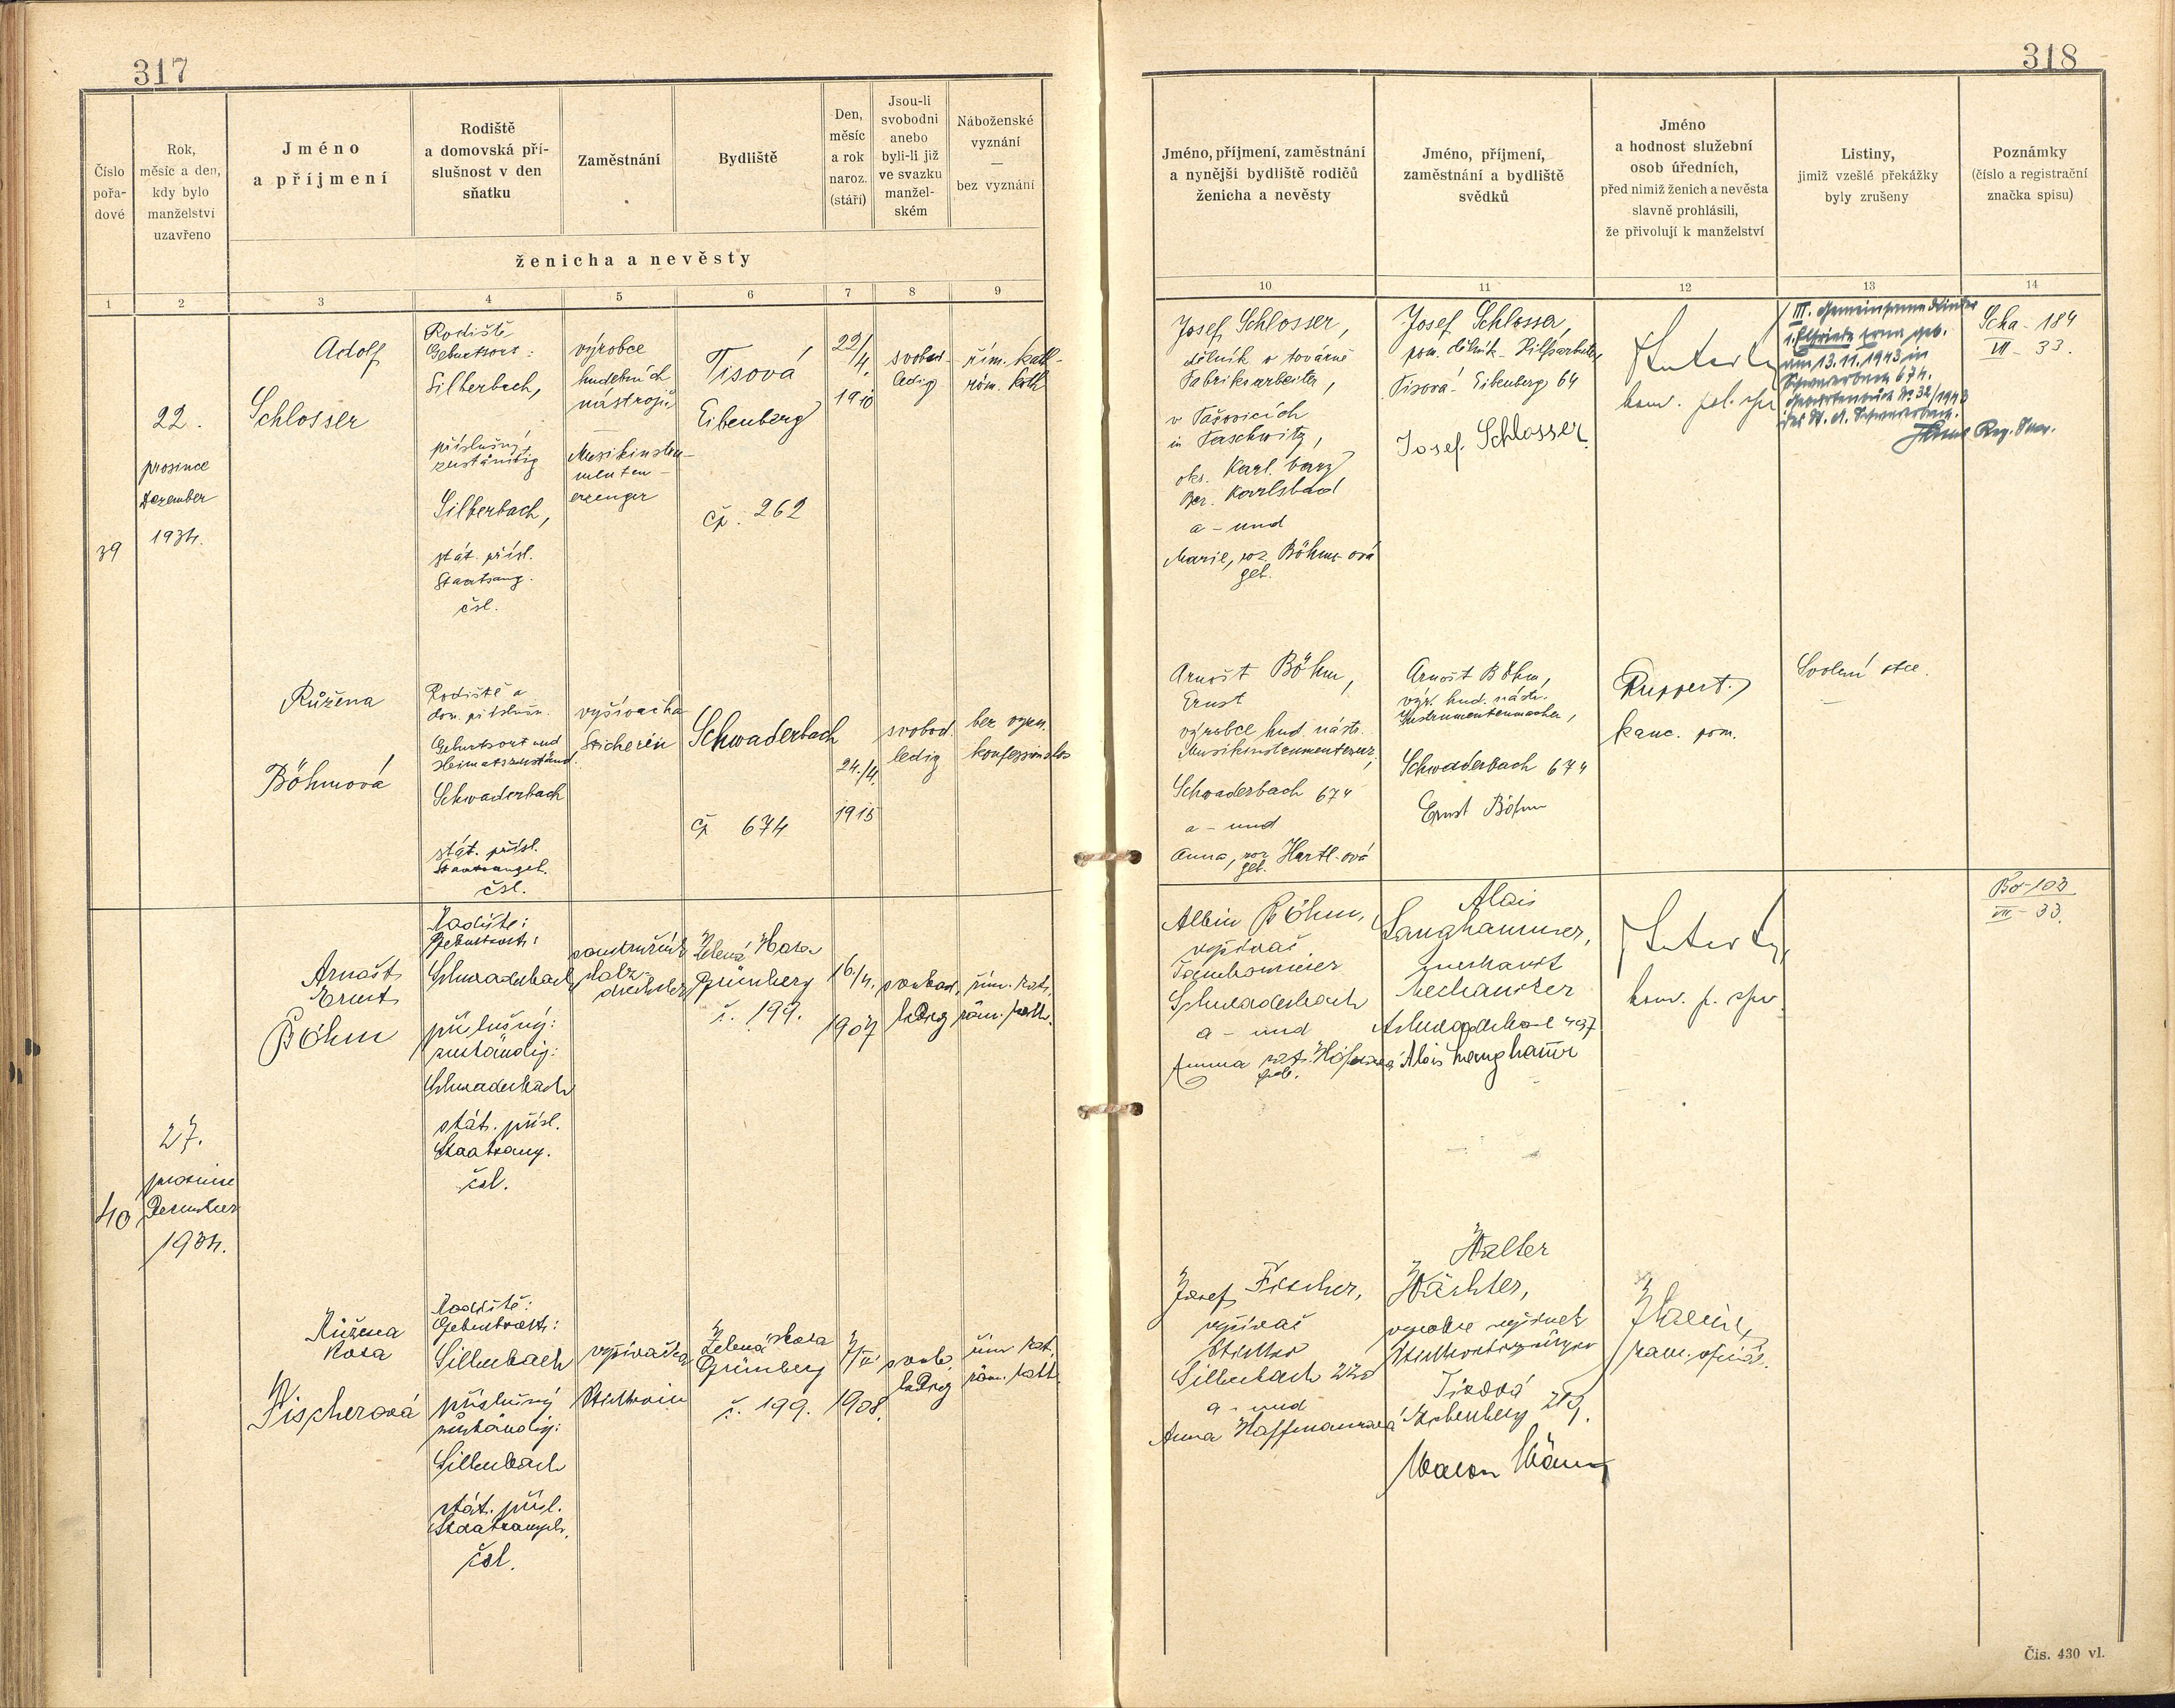 317
318
Číslo pořa-dové
Rok, měsíc a den, kdy bylo manželství uzavřeno
Jméno a příjmení
Rodiště a domovská pří-slušnost v den sňatku
Zaměstnání
Bydliště
Den, měsíc a rok naroz. (stáří)
Jsou-li svobodni anebo byli-li již ve svazku manžel-ském
Náboženské vyznání — bez vyznání
ženicha a nevěsty
Jméno, příjmení, zaměstnání a nynější bydliště rodičů ženicha a nevěsty
Jméno, příjmení, zaměstnání a bydliště svědků
Jméno a hodnost služební osob úředních, před nimiž ženich a nevěsta slavně prohlásili, že přivolují k manželství
Listiny, jimiž vzešlé překážky byly zrušeny
Poznámky (číslo a registrační značka spisu)
1 2 3 4 5 6 7 8 9 10 11 12 13 14
39
22.
prosince
Dezember
1934.
Adolf
Schlosser
Rodiště
Geburtsort:
Silberbach,
příslušný,
zuständig
Silberbach,
stát. přísl.
Staatsang.
čsl.
výrobce
hudebních
nástrojů,
Musikinstru-
menten-
erzeuger
Tisová
Eibenberg
čp. 262
22/
4.
1910
svobod-
ledig
řím. kath-
röm. kath
Josef Schlosser,
dělník v továrně
Fabriksarbeiter,
v Tašovicích
in Taschwitz,
okr. Karl. Vary
Bez. Karlsbad
a - und
Marie, roz. Böhm-ová
geb.
Josef Schlosser,
pom. dělník - Hilfsarbeiter
Tisová - Eibenberg 64
Josef Schlosser
III. Gemeinsame Kinder
1. Elfriede Erna geb.
am 13.11.1943 in
Schwaderbach 674.
Geburtenbuch Nr 32/1943
des St. A. Schwaderbach.
Scha - 184
VII - 33.
Růžena
Böhmová
Rodiště a
dom. přísluš.
Geburtsort und
Heimatszuständ.
Schwaderbach
stát. přísl.
Staatsangeh.
čsl.
vyšívačka
Stickerin
Schwaderbach
čp 674
24./4.
1915
svobod.
ledig
bez vyzn.
konfessionslos
Arnošt Böhm,
Ernst
výrobce hud. nástr.
Musikinstrumentenerz.,
Schwaderbach 674
a - und
Anna, roz Hartl-ová
geb.
Arnošt Böhm,
výr. hud. nástr.
Instrumentenmacher,
Schwaderbach 674
Ernst Böhm
Ruppert
kanc. pom.
Svolení otce.
40
27.
prosince
Dezember
1934.
Arnošt
Ernst
Böhm
Rodiště:
Geburtsort:
Schwaderbach
příslušný:
zuständig:
Schwaderbach
stát. přísl.
Staatsang.
čsl.
soustružník
Holz-
drechsler
Zelená Hora
Grünberg
č. 199.
16./4.
1907
svobod.
ledig
řím. kat.
röm. kath.
Albin Böhm,
vyšívač
Tambourierer
Schwaderbach
a - und
Emma roz.
geb.
Alois
Langhammer,
mechanik
Mechaniker
Schwaderbach 497
Alois Langhammer
Bö-103
VII - 33.
Růžena
Rosa
Fischerová
Rodiště:
Geburtsort:
Silberbach
příslušný
zuständig:
Silberbach
stát. přísl.
Staatsangeh.
čsl.
vyšívačka
Stickerin
Zelená Hora
Grünberg
č. 199.
1908.
svob.
ledig
řím. kat.
röm. kath.
Josef Fischer,
vyšívač
Sticker
Silberbach
a - und
Anna Hoffmannová
Walter
Wächter,
výrobce výšivek
Stickereierzeuger
Tisová
Eibenberg
Čís. 430 vl.